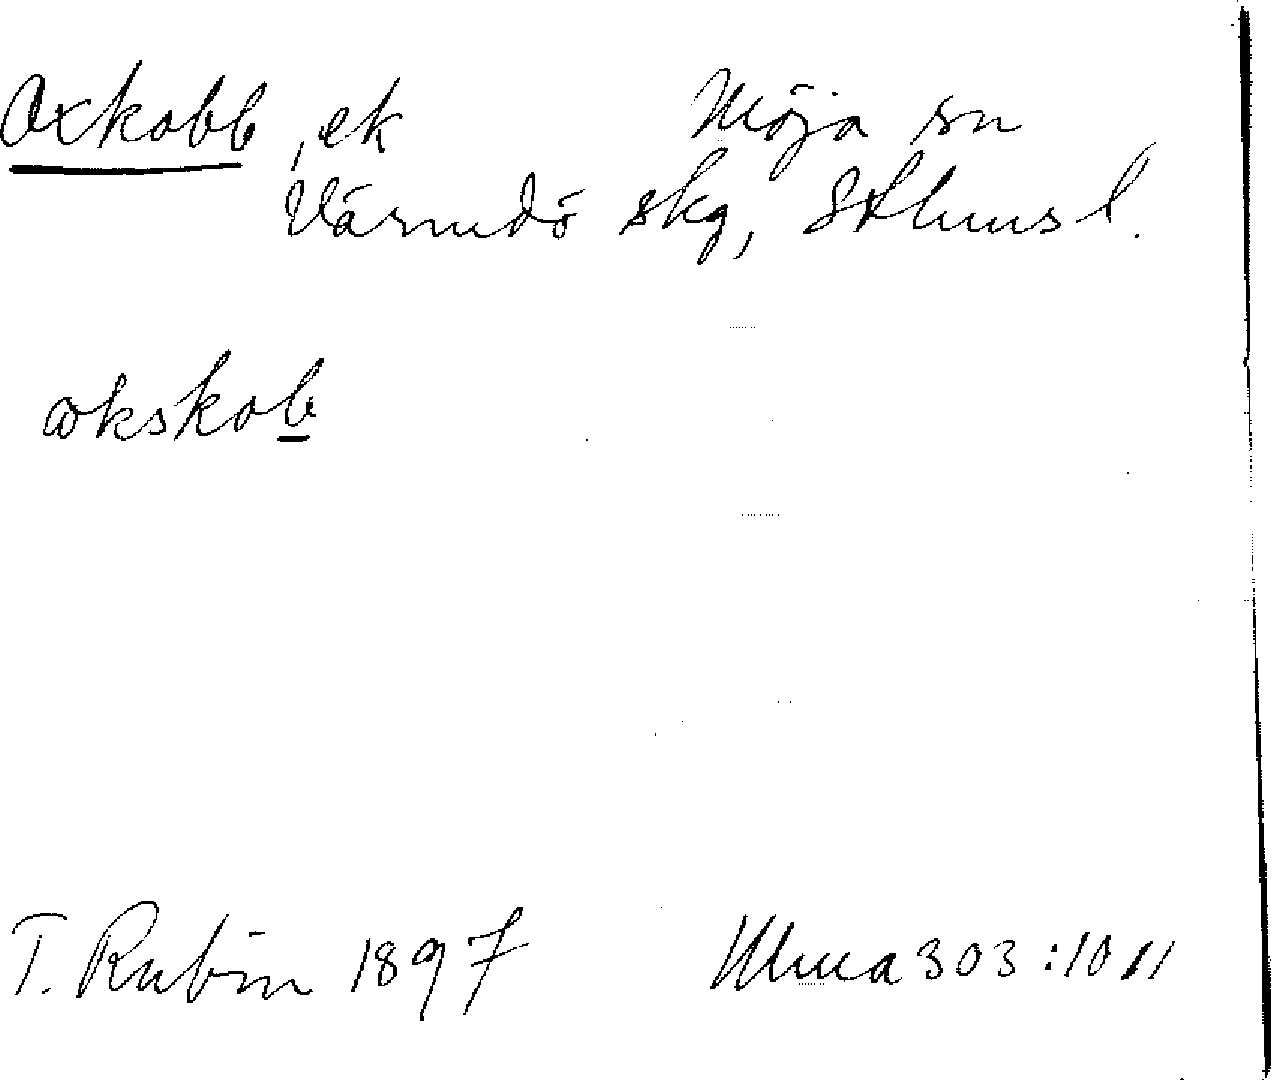 Oxkobb, ek Möja sn
Värmdö skg, Sthlms l.
okskob
T. Rubin 1897 Ulma 303:10